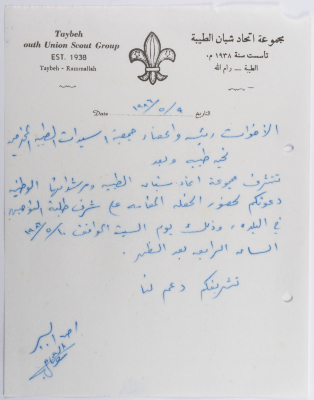 Taybeh
outh Union Scout Group
EST. 1938
Taybeh - Raamallah
مجموعة اتحاد شبان الطيبة
تأسست سنة ١٩٣٨ م.
الطيبة — رام الله
Date ١٩٨٦/٥/٩ التاريخ
الأخوات رئيسة واعضاء جمعية سيدات الطيبة الخيرية
تحية طيبة وبعد
تتشرف مجموعة اتحاد شبان الطيبة ومرشداتها الوطنية
دعوتكم لحضور الحفلة المقامة على شرف طلبة التوجيهي
في البلدة وذلك يوم السبت الموافق ٥/١٠
الساعة الرابعة بعد الظهر.
تشريفكم دعم لنا